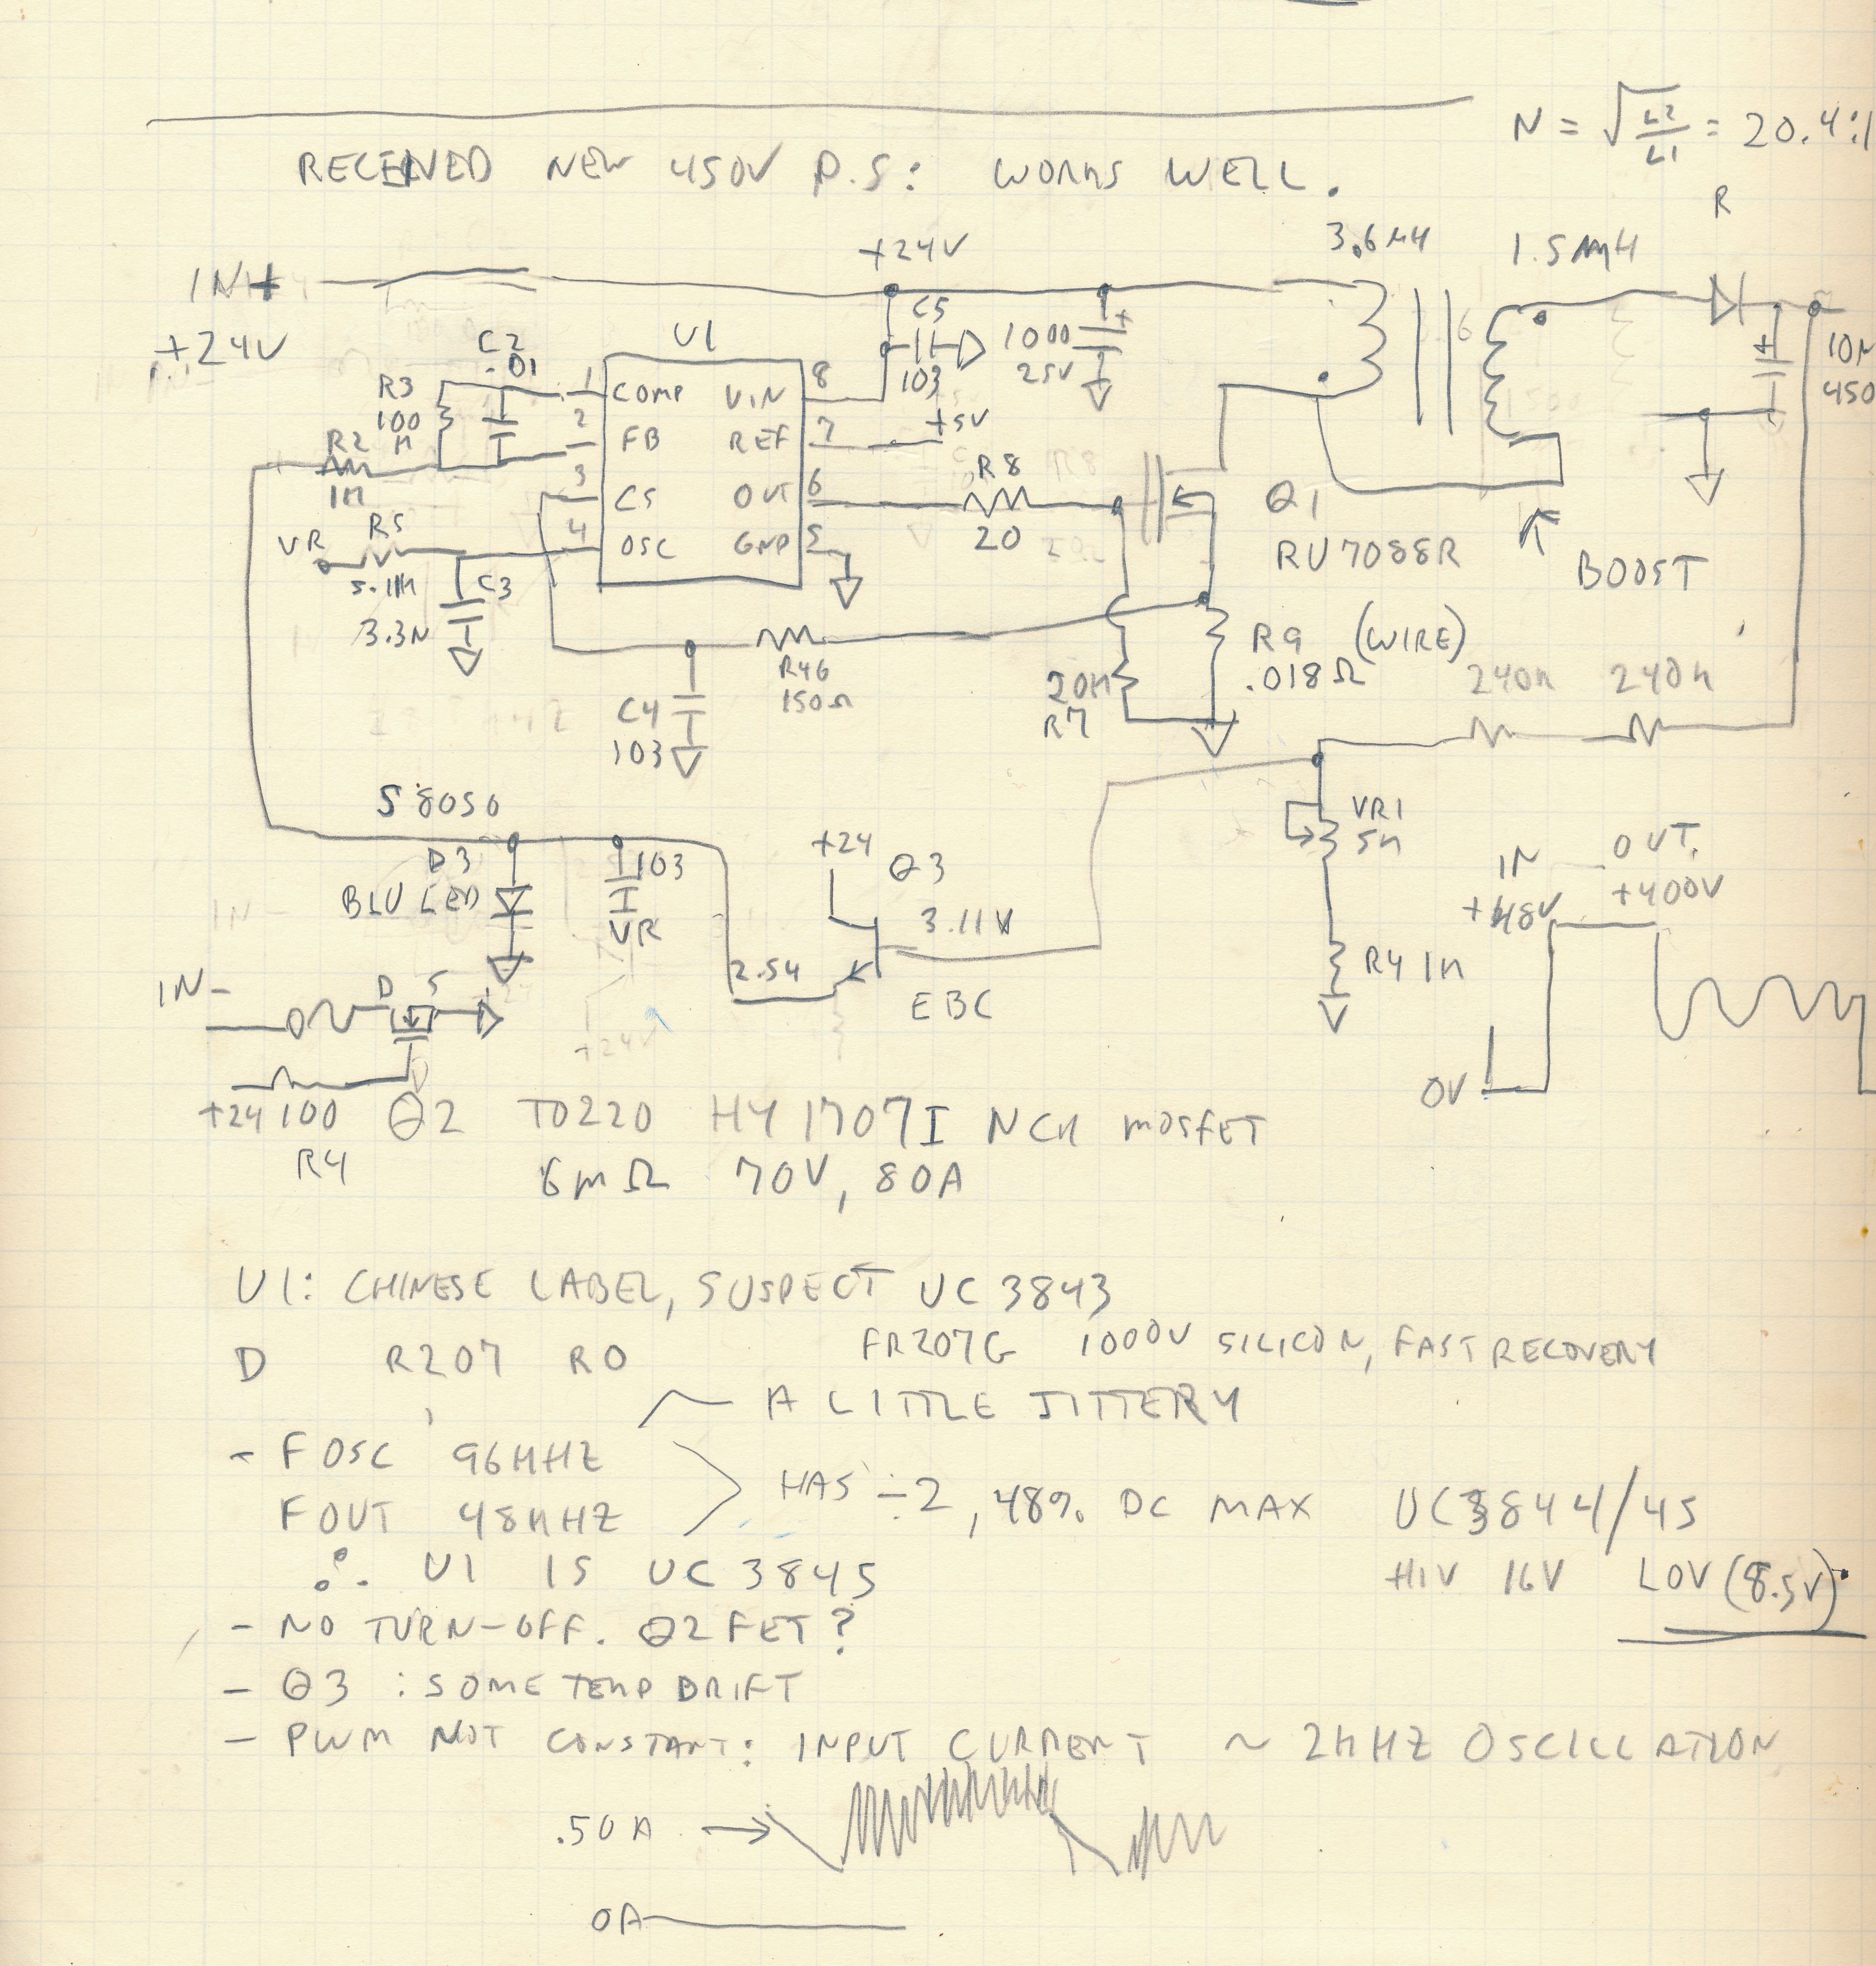 N = √L2/L1 = 20.4:1
RECEIVED NEW 450V P.S: WORKS WELL.
R
+24V
3.6µH
1.5mH
IN+
+24V
U1
C5
103
1000
25V
+
+
10µ
450
C2
.01
R3
100
K
R2
1K
1
COMP
VIN
8
2
FB
REF
7
+5V
3
CS
OUT
6
R8
20
4
OSC
GND
5
VR
R5
5.11K
C3
3.3N
Q1
RU7088R
BOOST
R46
150Ω
C4
103
R9 (WIRE)
.018Ω
20K
R7
240K
240K
S8050
D3
BLU LED
103
VR
+24
Q3
3.11V
2.54
EBC
VR1
5K
R4 1K
IN
+48V
OUT
+400V
0V
IN-
D
S
+24 100
R4
Q2 TO220 HY1707I NCH MOSFET
6mΩ 70V, 80A
U1: CHINESE LABEL, SUSPECT UC3843
D R207 RO FR207G 1000V SILICON, FAST RECOVERY
~ A LITTLE JITTERY
- FOSC 96KHZ
FOUT 48KHZ
HAS ÷2, 48% DC MAX
UC3844/45
HIV 16V LOV (8.5V)
∴ U1 IS UC3845
- NO TURN-OFF. Q2 FET?
- Q3 : SOME TEMP DRIFT
- PWM NOT CONSTANT: INPUT CURRENT ~ 2KHZ OSCILLATION
.50A →
0A